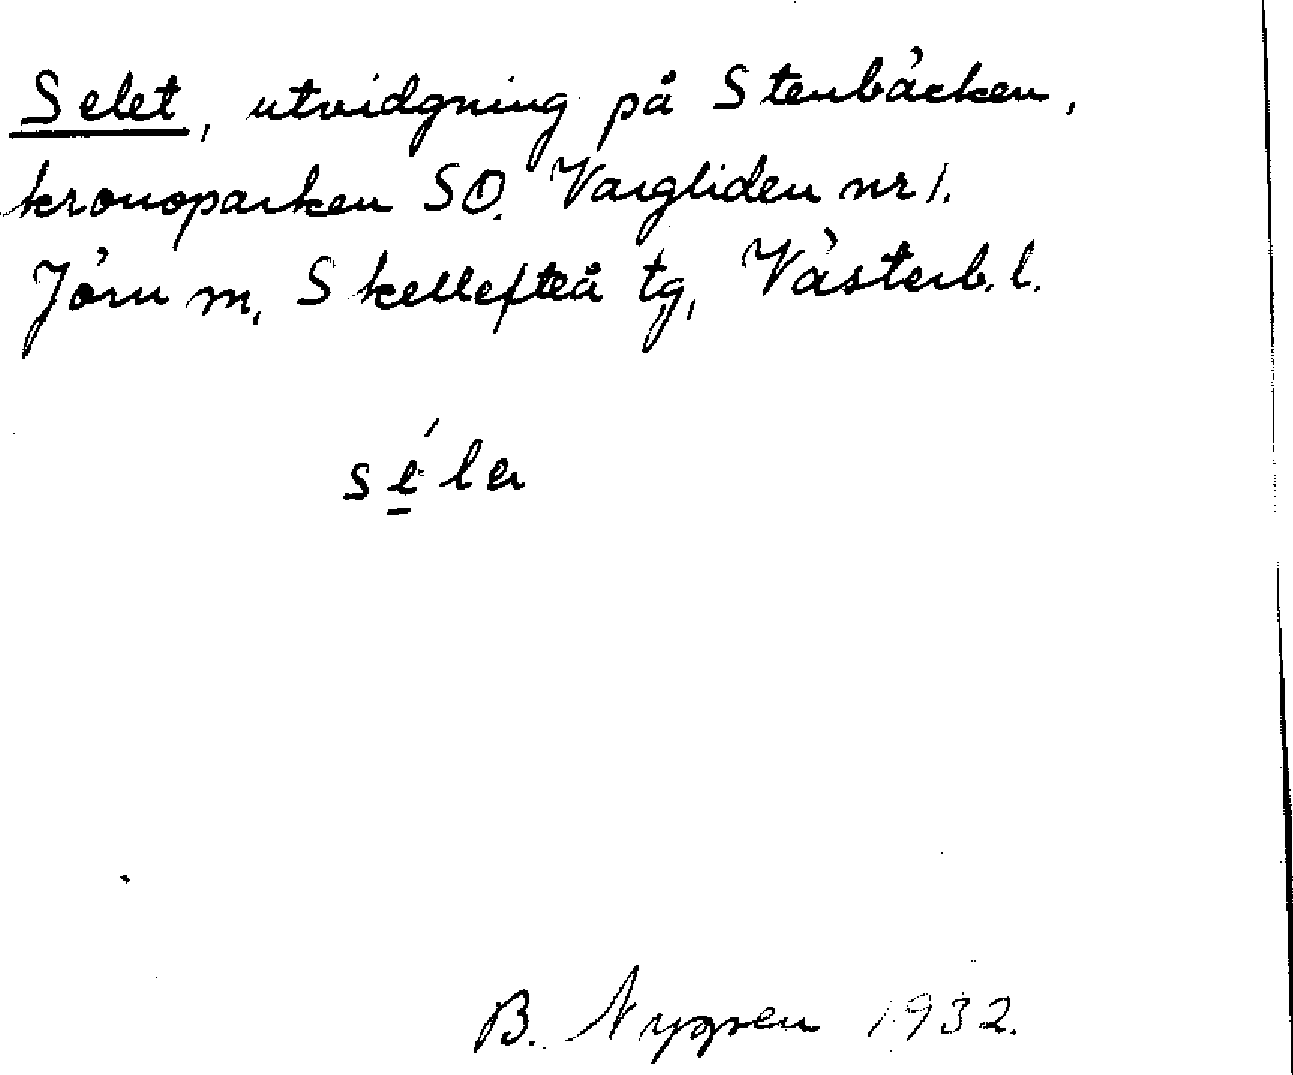 Selet, utvidgning på Stenbäcken,
kronoparken SO. Vargliden nr 1.
Jörn sn, Skellefteå tg, Västerb. l.
séla
B. Nygren 1932.